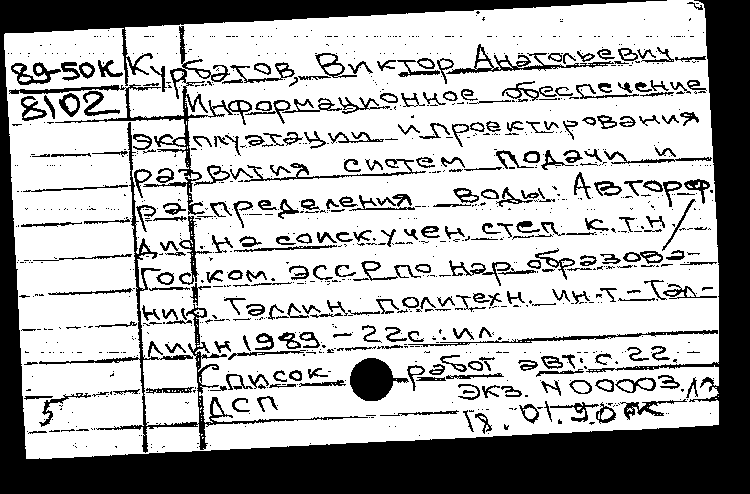 89-50К Курбатов, Виктор Анатольевич
8102 Информационное обеспечение
эксплуатации и проектирования
развития систем подачи и
распределения воды: Автореф.
дис. на соиск. учен. степ. к.т.н. /
Гос. ком. ЭССР по нар. образова-
нию. Таллин. политехн. ин-т. - Тал-
линн, 1989. - 22с.: ил.
Список работ авт.: с. 22. -
ДСП Экз. N 00003
5 18.01.90